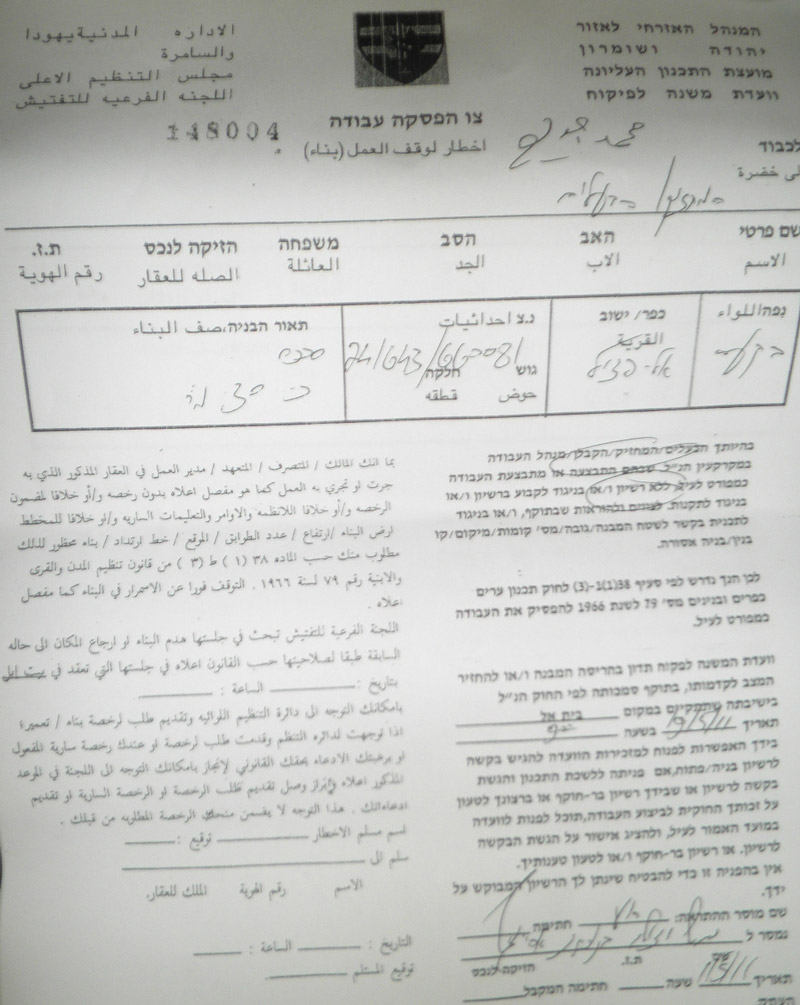 המנהל האזרחי לאזור
יהודה ושומרון
מועצת התכנון העליונה
וועדת משנה לפיקוח
الاداره المدنية يهودا
والسامرة
مجلس التنظيم الاعلى
اللجنه الفرعيه للتفتيش
צו הפסקה עבודה
148004
اخطار لوقف العمل (بناء)
לכבוד
لى حضرة
שם פרטי האב הסב משפחה הזיקה לנכס ת.ז.
الاسم الاب الجد العائلة الصله للعقار رقم الهوية
נפה/اللواء כפר/ ישוב נ.צ احداثيات תאור הבניה،صف البناء
القرية
גוש חלקה
حوض قطقه
בהיותך הבעלים/המחזיק/הקבלן/מנהל העבודה
במקרקעין הנ"ל, שבהם התבצעה או מתבצעת העבודה
כמפורט לעיל, ללא רשיון ו/או בניגוד לקבוע ברשיון ו/או
בניגוד לתקנות, לצווים ולהוראות שבתוקף, ו/או בניגוד
לתכנית בקשר לשטח המבנה/גובה/מס' קומות/מיקום/קו
בנין/בניה אסורה.
לכן הנך נדרש לפי סעיף 38(1)-(3) לחוק תכנון ערים
כפרים ובנינים מס' 79 לשנת 1966 להפסיק את העבודה
כמפורט לעיל.
וועדת המשנה לפקוח תדון בהריסה המבנה ו/או להחזיר
המצב לקדמותו, בתוקף סמכותה לפי החוק הנ"ל
בישיבתה שתתקיים במקום בית אל
תאריך 19/5/11 בשעה
בידך האפשרות לפנות למזכירות הוועדה להגיש בקשה
לרשיון בניה/פתוח, אם פניתה ללשכת התכנון והגשת
בקשה לרשיון או שבידך רשיון בר-תוקף או ברצונך לטעון
על זכותך החוקית לביצוע העבודה, תוכל לפנות לוועדה
במועד האמור לעיל, ולהציג אישור על הגשת הבקשה
לרשיון, או רשיון בר-תוקף ו/או לטעון טענותיך.
אין בהפניה זו כדי להבטיח שינתן לך הרשיון המבוקש על
ידך.
שם מוסר ההתראה: חתימה
נמסר ל
שם ת.ז. הזיקה לנכס
תאריך שעה חתימה המקבל
بما انك المالك / المتصرف / المتعهد / مدير العمل في العقار المذكور الذي به
جرت او تجري به العمل كما هو مفصل اعلاه بدون رخصه و/أو خلافا لمضمون
الرخصه و/أو خلافا للانظمه والاوامر والتعليمات الساريه و/او خلافا للمخطط
ارض البناء /ارتفاع / عدد الطوابق / الموقع / خط ارتداد / بناء محظور للذلك
مطلوب منك حسب الماده ٣٨ (١ ) ط (٣ ) من قانون تنظيم المدن والقرى
والابنية رقم ٧٩ لسنة ١٩٦٦ . التوقف فورا عن الاستمرار في البناء كما مفصل
اعلاه .
اللجنة الفرعية للتفتيش تبحث في جلستها هدم البناء او ارجاع المكان الى حاله
السابقة طبقا لصلاحيتها حسب القانون اعلاه في جلستها التي تعقد في بيت ايل
بتاريخ : الساعة :
بامكانك التوجه الى دائرة التنظيم اللوائيه وتقديم طلب لرخصة بناء / تعمير؛
اذا توجهت لدائره التنظم وقدمت طلب لرخصة او عندك رخصة سارية المفعول
او برغبتك الادعاء بحقك القانوني لإنجاز بامكانك التوجه الى اللجنة في الموعد
المذكور اعلاه وإبراز وصل تقديم طلب الرخصة او الرخصة السارية او تقديم
ادعاءاتك . هذا التوجه لا يضمن منحك الرخصة المطلوبه من قبلك .
اسم مسلم الاخطار توقيع :
سلم الى
الاسم رقم الهوية الملك للعقار.
التاريخ : الساعة :
توقيع المستلم